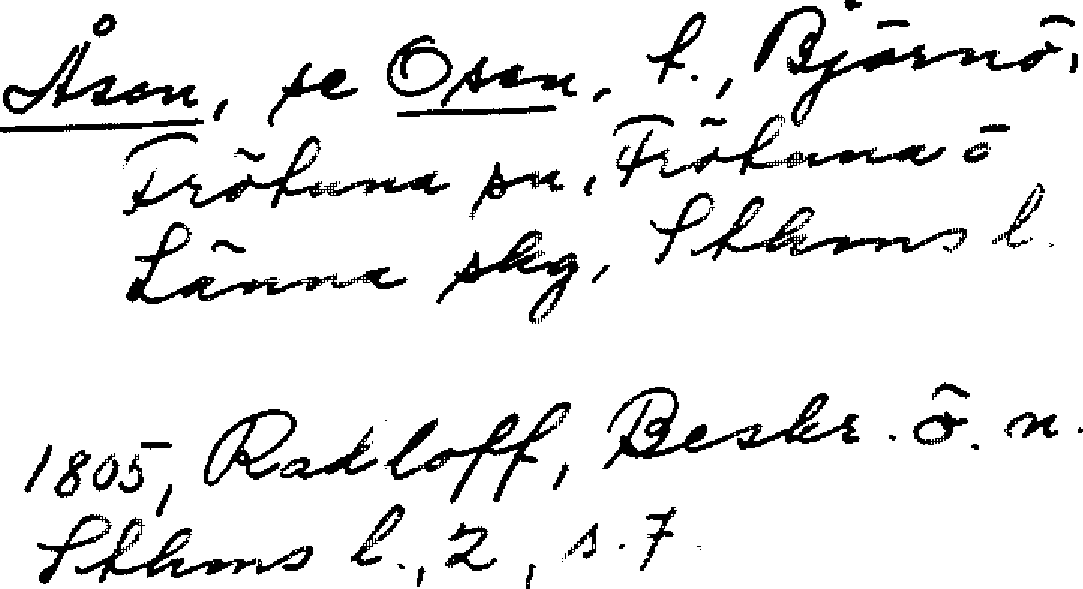 Åsen, se Osen, t., Björnö,
Frötuna sn, Frötuna o
Länna skg, Sthlms l.
1805, Radloff, Beskr. ö. n.
Sthlms l., 2, s. 7.